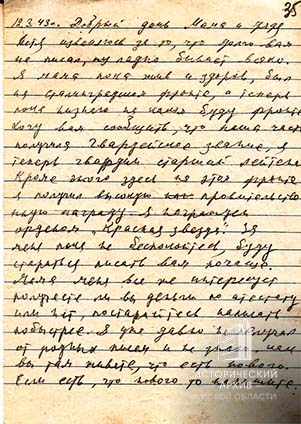 35
12.3.43г. Добрый день Мама и Надя
Надя извеняюсь за то, что долго вам
не писал, ну ладно бывает всяко.
Я мама пока жив и здоров, был
на сталинградском фронте, а теперь
пока неизвестно на каком буду фронте
Хочу вам сообщить, что наша часть
получила гвардейское звание, я
теперь гвардии старший лейтена
Кроме этого здесь на этом фронте
я получил высокую правительств
ную награду. Я награжден
орденом „Красная звезда" За
меня пока не беспокойтесь, буду
стараться писать вам почаще.
Мама меня все же интересует
получаете ли вы деньги по атестату
или нет, постарайтесь написать
побыстрее. Я уже давно не получал
от родных писем и не знаю как
вы там живете, что есть нового.
Если есть, что нового то напишите.
ИСТОРИЧЕСКИЙ
АРХИВ
ОМСКОЙ ОБЛАСТИ